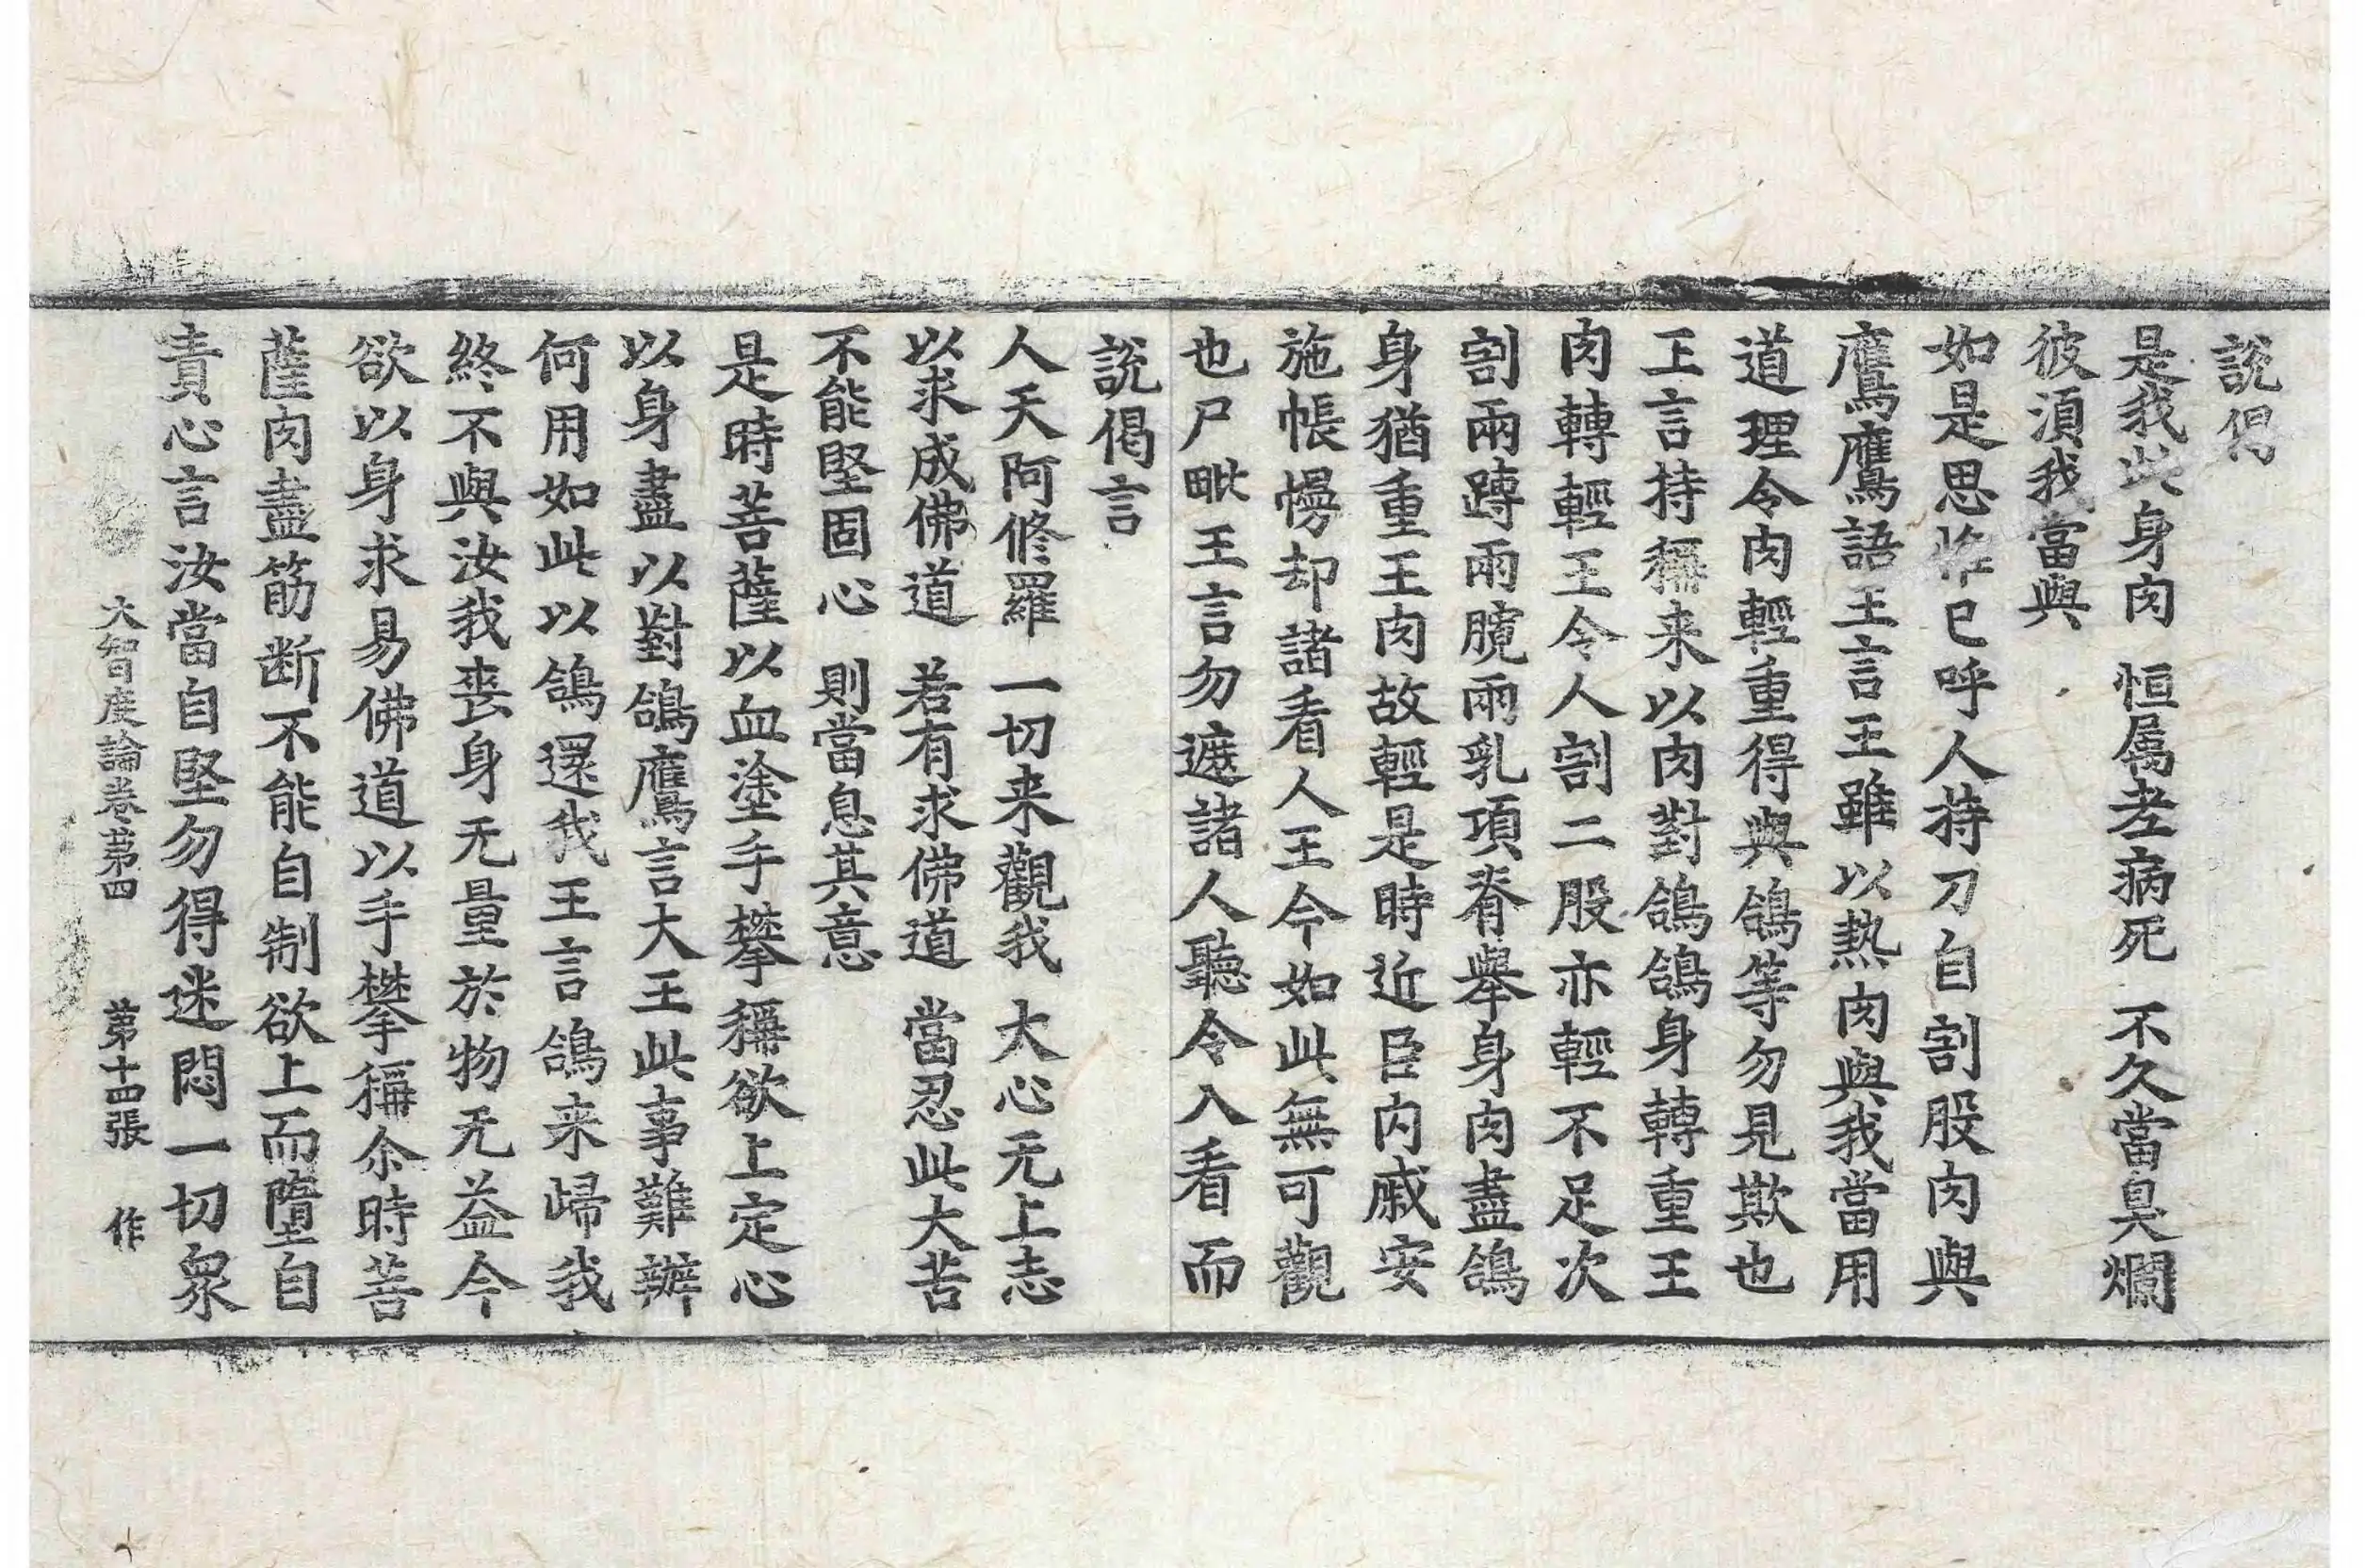 說偈
是我此身肉　恒属老病死　不久當臭爛
彼湏我當與
如是思惟已呼人持刀自割股肉與
鷹鷹語王言王雖以熱肉與我當用
道理令肉輕重得與鴿等勿見欺也
王言持稱来以肉對鴿鴿身轉重王
肉轉輕王令人割二股亦輕不足次
割兩䏝兩臗兩乳項脊舉身肉盡鴿
身猶重王肉故輕是時近臣内戚安
施帳幔却諸看人王今如此無可觀
也尸毗王言勿遮諸人聽令入看而
說偈言
人天阿修羅　一切来觀我　大心无上志
以求成佛道　若有求佛道　當忍此大苦
不能堅固心　則當息其意
是時菩薩以血塗手攀稱欲上定心
以身盡以對鴿鷹言大王此事難辦
何用如此以鴿還我王言鴿来歸我
終不與汝我喪身无量於物无益今
欲以身求易佛道以手攀稱尒時菩
薩肉盡筋断不能自制欲上而墮自
責心言汝當自堅勿得迷悶一切衆
大智度論卷第四　第十四張　作